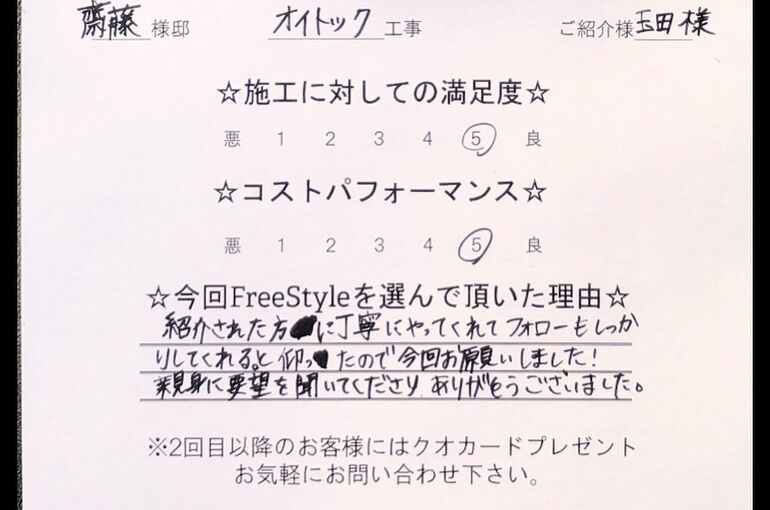 齋藤様邸 オイトック工事 ご紹介様玉田様
☆施工に対しての満足度☆
悪 1 2 3 4 5 良
☆コストパフォーマンス☆
悪 1 2 3 4 5 良
☆今回FreeStyleを選んで頂いた理由☆
紹介された方に丁寧にやってくれてフォローもしっか
りしてくれると仰ったので今回お願いしました!
親身に要望を聞いてくださりありがとうございました。
※2回目以降のお客様にはクオカードプレゼント
お気軽にお問い合わせ下さい。